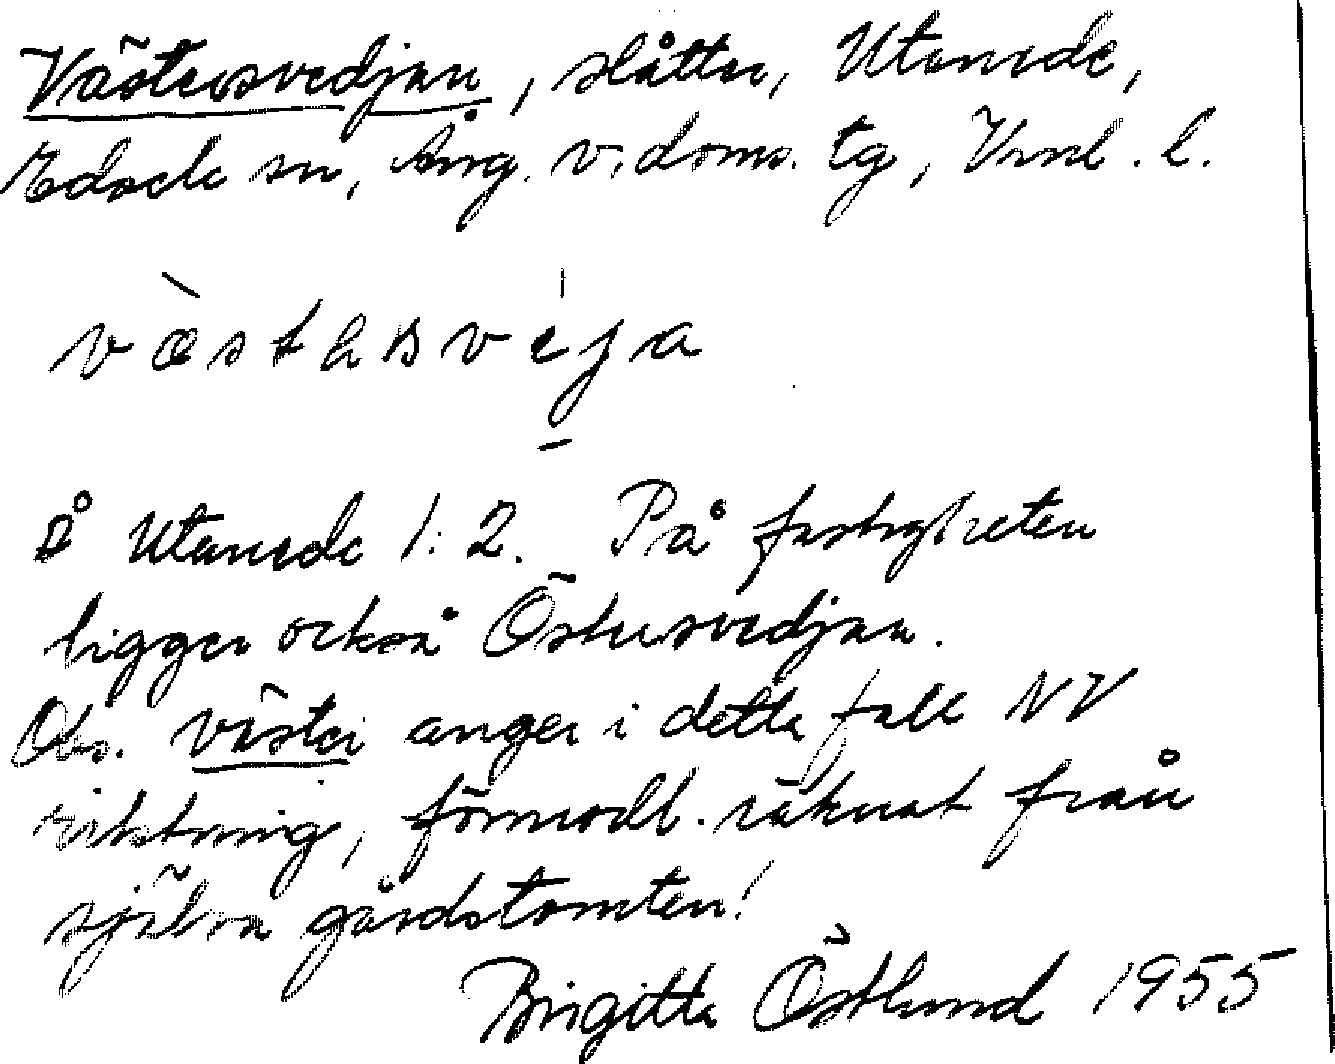 Västersvedjan, slåtter, Utanede,
Edsele sn, Ång. v. doms. tg, Vnl. l.
Å Utanede 1:2. På fastigheten
ligger också Östersvedjan.
Obs. väster anger i detta fall NV
riktning, förmodl. räknat från
själva gårdstomten!
Birgitta Östlund 1955